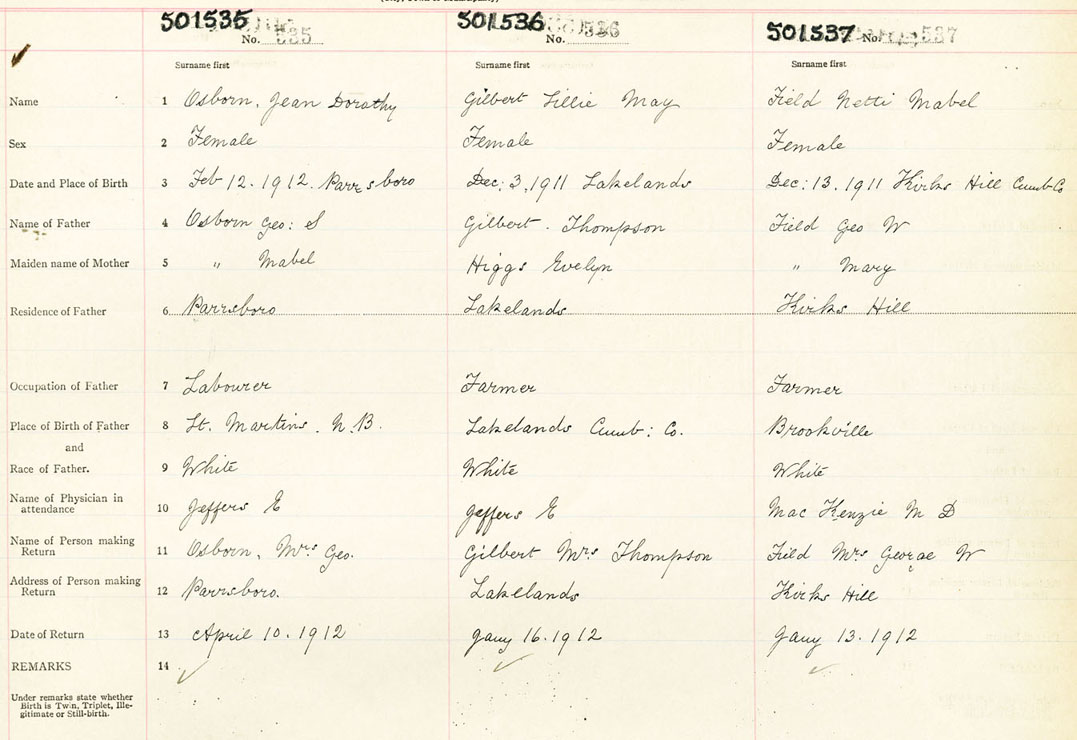 501535 No. 535 501536 No. 536 501537 No. 537
Surname first Surname first Surname first
Name 1 Osborn, Jean Dorathy Gilbert Lillie May Field Netti Mabel
Sex 2 Female Female Female
Date and Place of Birth 3 Feb 12. 1912. Parrsboro Dec: 3, 1911 Lakelands Dec: 13. 1911 Kirks Hill Cumb Co
Name of Father 4 Osborn Geo: S Gilbert. Thompson Field Geo W
Maiden name of Mother 5 " Mabel Higgs Evelyn " Mary
Residence of Father 6 Parrsboro Lakelands Kirks Hill
Occupation of Father 7 Labourer Farmer Farmer
Place of Birth of Father 8 St. Martins. N.B. Lakelands Cumb: Co. Brookville
and
Race of Father. 9 White White White
Name of Physician in
attendance 10 Jeffers E Jeffers E Mac Kenzie M D
Name of Person making
Return 11 Osborn, Mrs Geo. Gilbert Mrs Thompson Field Mrs George W
Address of Person making
Return 12 Parrsboro. Lakelands Kirks Hill
Date of Return 13 April 10. 1912 Jany 16. 1912 Jany 13. 1912
REMARKS 14
Under remarks state whether
Birth is Twin, Triplet, Ille-
gitimate or Still-birth.